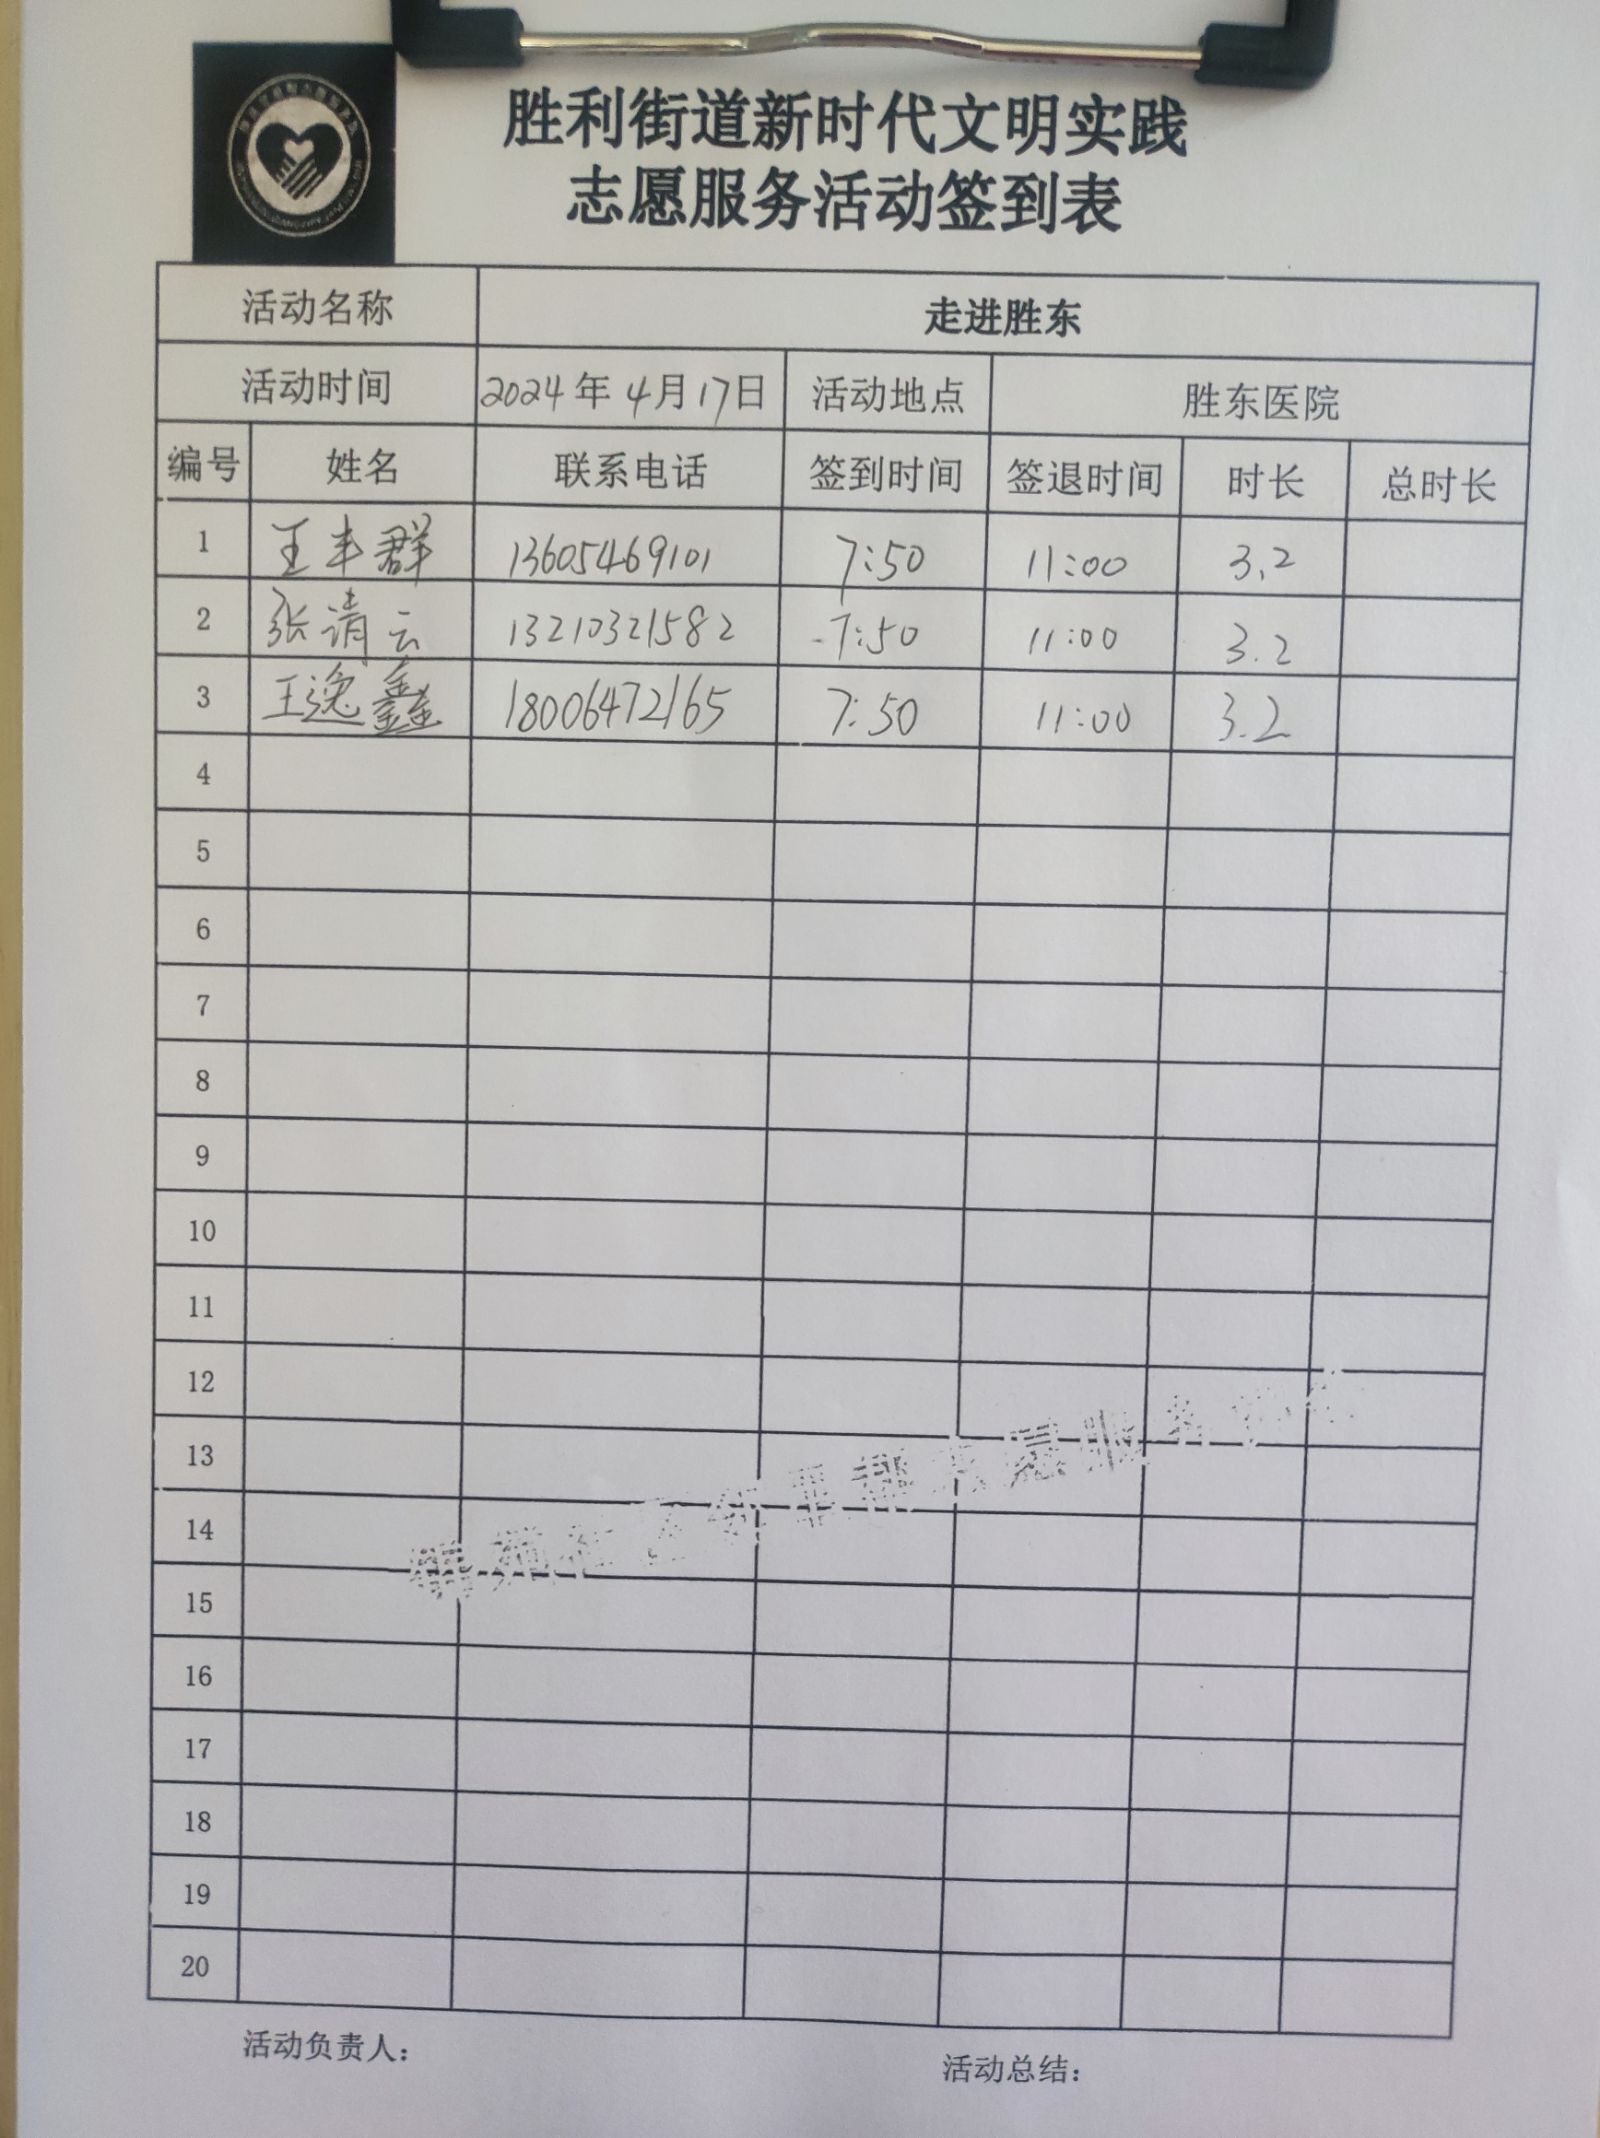 胜利街道新时代文明实践
志愿服务活动签到表
活动名称 走进胜东
活动时间 2024年4月17日 活动地点 胜东医院
编号 姓名 联系电话 签到时间 签退时间 时长 总时长
1 王丰群 13605469101 7:50 11:00 3.2
2 张清云 13210321582 7:50 11:00 3.2
3 王逸鑫 18006472165 7:50 11:00 3.2
4
5
6
7
8
9
10
11
12
13
14
15
16
17
18
19
20
活动负责人： 活动总结：